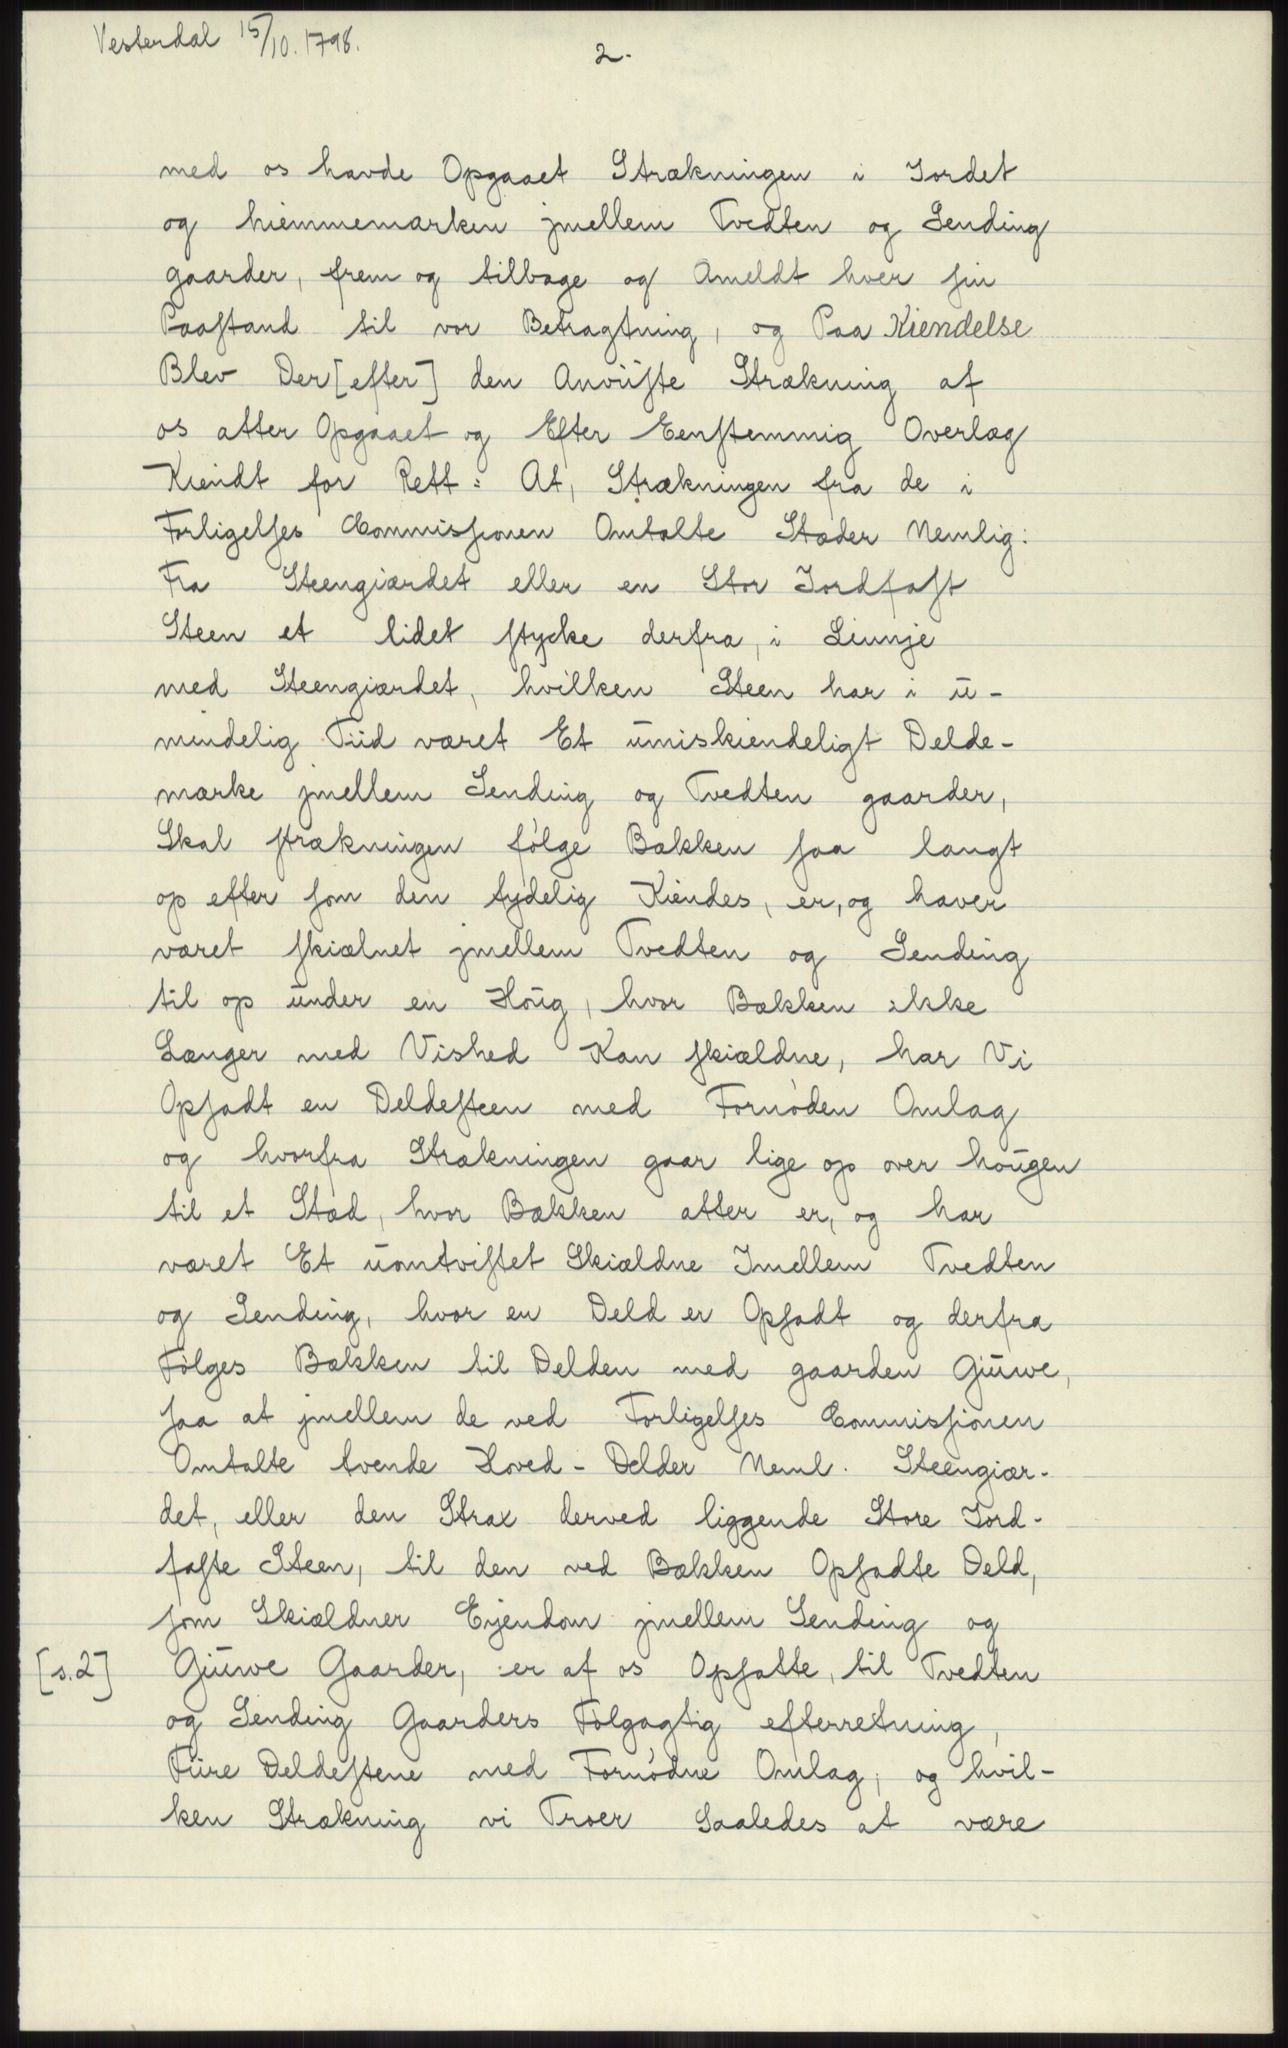 Vesterdal 15/10. 1798.
2.
med os havde Opgaaet Strækningen i Jordet
og hiemmemarken jmellem Tvedten og Sending
gaarder, frem og tilbage og Ameldt hver sin
Paastand til vor Betragtning, og Paa Kiendelse
Blev Der [efter] den Anviiste Strækning af
os atter Opgaaet og Efter Eenstemmig Overlæg
Kiendt for Rett: At, Strækningen fra de i
Forligelses Commissionen Omtalte Stæder Nemlig:
Fra Steengiærdet eller en Stor Jordfast
Steen et lidet stycke derfra, i Liunje
med Steengiærdet, hvilken Steen har i u-
mindelig Tiid været Et umiskiendeligt Delde-
mærke jmellem Sending og Tvedten gaarder,
Skal strækningen følge Bækken saa langt
op efter som den tydelig Kiendes, er, og haver
været skiælnet jmellem Tvedten og Sending
til op under en Houg, hvor Bækken ikke
Længer med Vished Kan skiældne, har Vi
Opsadt en Deldesteen med Fornøden Omlag
og hvorfra Strækningen gaar lige op over hougen
til et Stæd, hvor Bækken atter er, og har
været Et uomtvistet Skiældne Imellem Tvedten
og Sending, hvor en Deld er Opsadt og derfra
Følges Bækken til Delden med gaarden Giuwe,
saa at jmellem de ved Forligelses Commissionen
Omtalte tvende Hoved-Delder Neml. Steengiær-
det, eller den Strax derved liggende Store Jord-
faste Steen, til den ved Bækken Opsadte Deld,
som Skiældner Eyendom jmellem Sending og
[s.2] Giuwe Gaarder, er af os Opsatte, til Tvedten
og Sending Gaarders Følgagtig efterretning,
Fiire Deldestene med Fornødne Omlag, og hvil-
ken Strækning vi Troer Saaledes at være